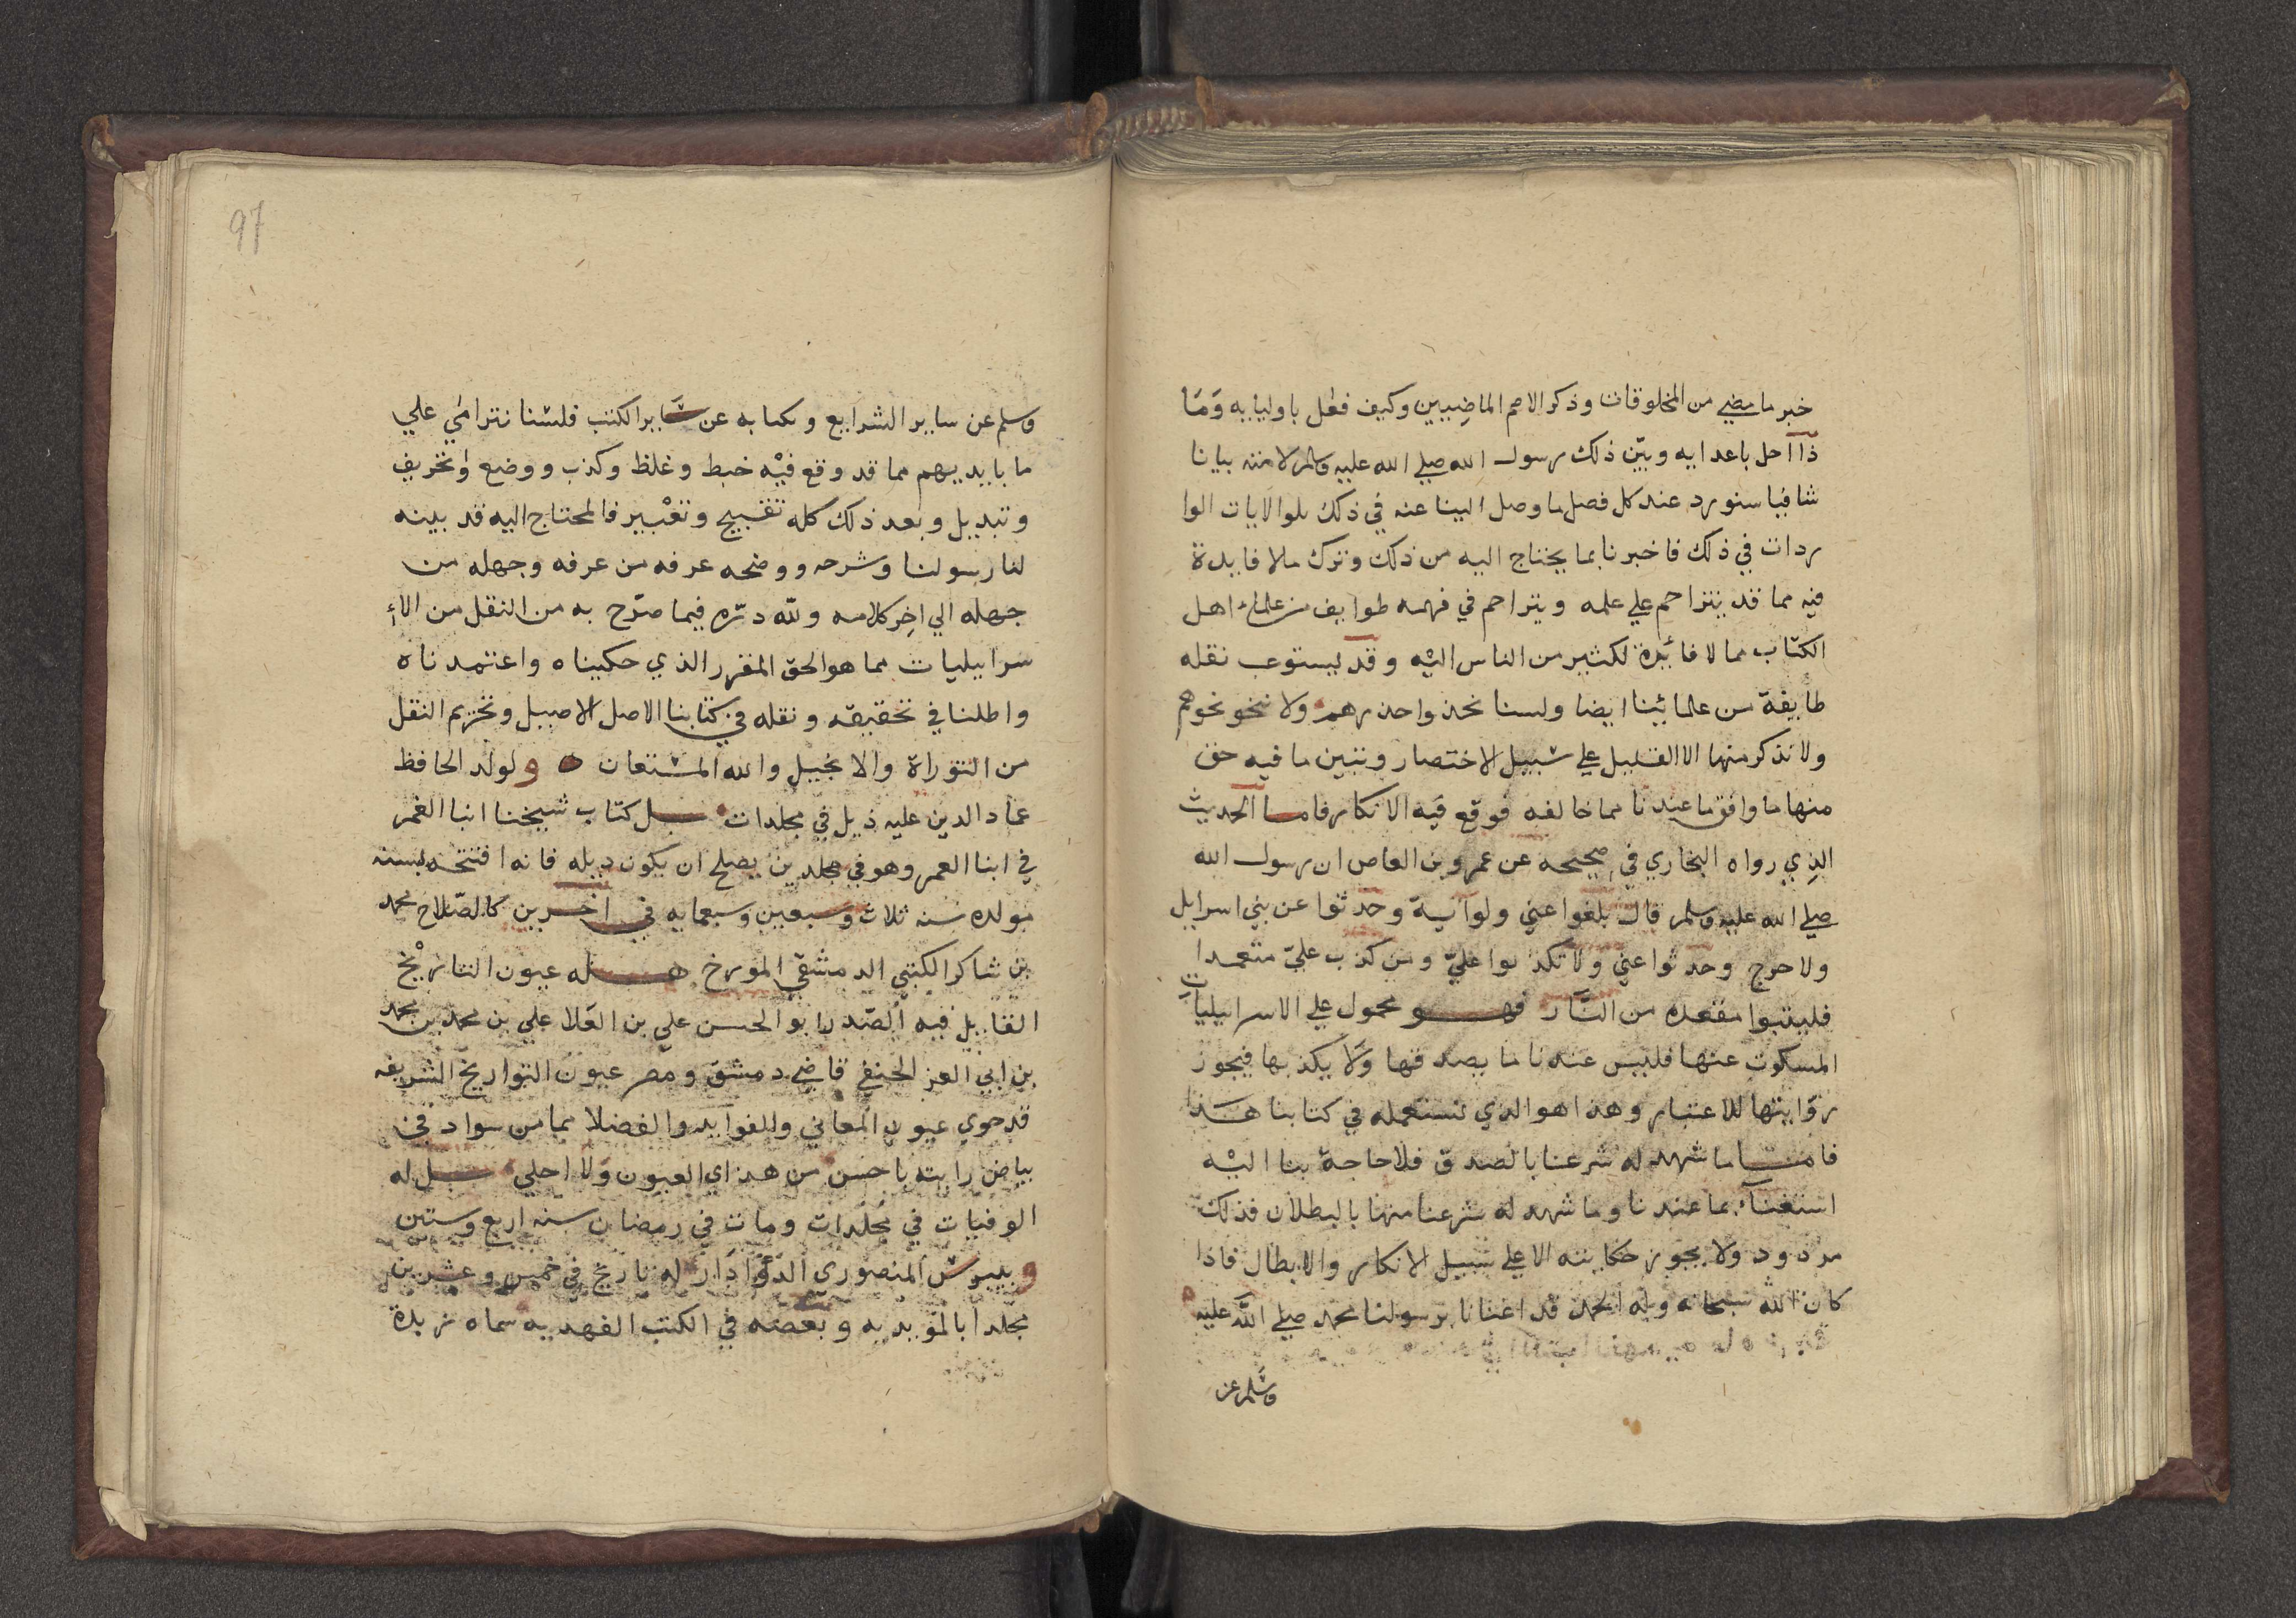 خبر ما مضي من المخلوقات وذكر الامم الماضيين وكيف فعل باوليايه وَمَا
ذا احل باعدايه وبيّن ذلك رسول الله صلي الله عليه وسلم لامته بيانا
شافيا سنورد عند كل فصل ما وصل الينا عنه في ذلك تلو الايات الوا
ردات في ذلك فاخبرنا بما يحتاج اليه من ذلك وترك مالا فايدة
فيه مما قد يتزاحم علي علمه ويتراحم في فهمه طوايف من علماء اهل
الكتاب مما لا فائدة لكثير من الناس اليه وقد يستوعب نقله
طايفة من علمائنا ايضا ولسنا نحذوا حذوهم ولا ننحو نحوهم
ولا نذكر منها الا القليل علي سبيل الاختصار ونبين ما فيه حق
منها ما وافق ما عندنا مما خالفه فوقع فيه الانكار فاما الحديث
الذي رواه البخاري في صحيحه عن عمرو بن العاص ان رسول الله
صلي الله عليه وسلم قال بلغوا عني ولو آية وحدثوا عن بني اسرايل
ولا حرج وحدثوا عني ولا تكذبوا عليّ ومن كذب عليّ متعمدا
فليتبوا مقعده من النَّار فهو محمول علي الاسرايليات
المسكوت عنها فليس عندنا ما يصدقها وَلَا يكذبها فيجوز
روايتها للاعتبار وهذا هو الذي نستعمله في كتابنا هَذا
فامَّا ما شهد له شرعنا بالصدق فلا حاجة بنا اليه
استغناءً بما عندنا وما شهد له شرعنا منها بالبطلان فذلك
مردود ولا يجوز حكايته الا علي سبيل الانكار والابطال فاذا
كان الله سبحانه وله الحمد قد اغنانا برسولنا محمد صلي الله عليه
وسلم عن
97
وسلم عن ساير الشرايع وبكتابه عن سَاير الكتب فلسنا نترامي علي
ما بايديهم مما قد وقع فيه خبط وغلط وكذب ووضع وتحريف
وتبديل وبعد ذلك كله تقبيح وتغيير فالمحتاج اليه قد بينه
لنا رسولنا وشرحه ووضحه عرفه من عرفه وجهله من
جهله الي اخِر كلامه ولله درّه فيما صرّح به من النقل من الأ
سرايليات مما هو الحق المقرر الذي حكيناه واعتمدناه
واطلنا في تحقيقه ونقله في كتابنا الاصل الاصيل وتحريم النقل
من التوراة والانجيل والله المستعان ولولد الحافظ
عماد الدين عليه ذيل في مجلدات بل كتاب شيخنا انبا الغمر
في ابنا العمر وهو في مجلدين يصلح ان يكون ذيله فانه افتتحه بسنه
مولده سنه ثلاث وسبعين وسبعمايه في اخرين كالصّلاح محمد
بن شاكر الكتبي الدمشقي المورخ له عيون التاريْخ
القايل فيه الصّدر ابو الحسن علي بن العَلا علي بن محمد بن محمد
بن ابي العز الحنفي قاضي دمشق ومصر عيون التواريخ الشريفه
قد حوي عيون المعاني والفوايد والفضلا مما من سواد في
بياض رايته باحسن من هذاي العيون وَلا احلي بل له
الوفيات في مُجلدات ومات في رمضان سنه اربع وستين
وبيبرس المنصوري الدَّوَادَار له تاريخ في خمس وعشرين
مجلدا بالمؤيديه وبَعضه في الكتب الفهديه سماه زبدة